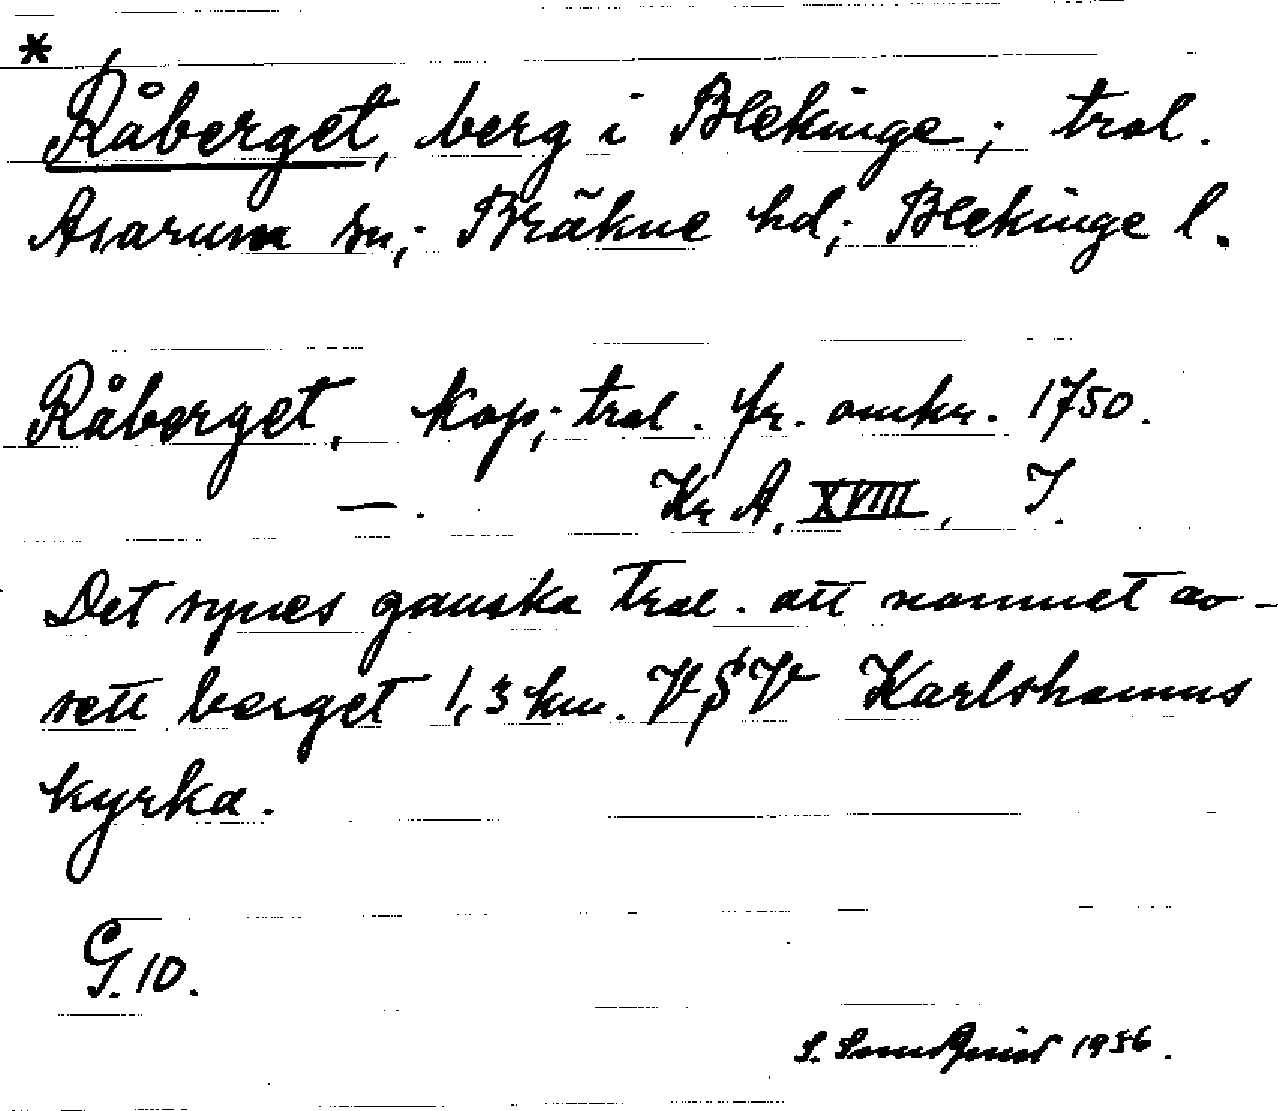 *
Råberget, berg i Blekinge; trol.
Asarum sn; Bräkne hd; Blekinge l.
Råberget, Kop; trol. fr. omkr. 1750.
—. KrA. XVIII, I.
Det synes ganska trol. att namnet av-
sett berget 1,3 km. VSV Karlshamns
kyrka.
G. 10.
S. 1936.